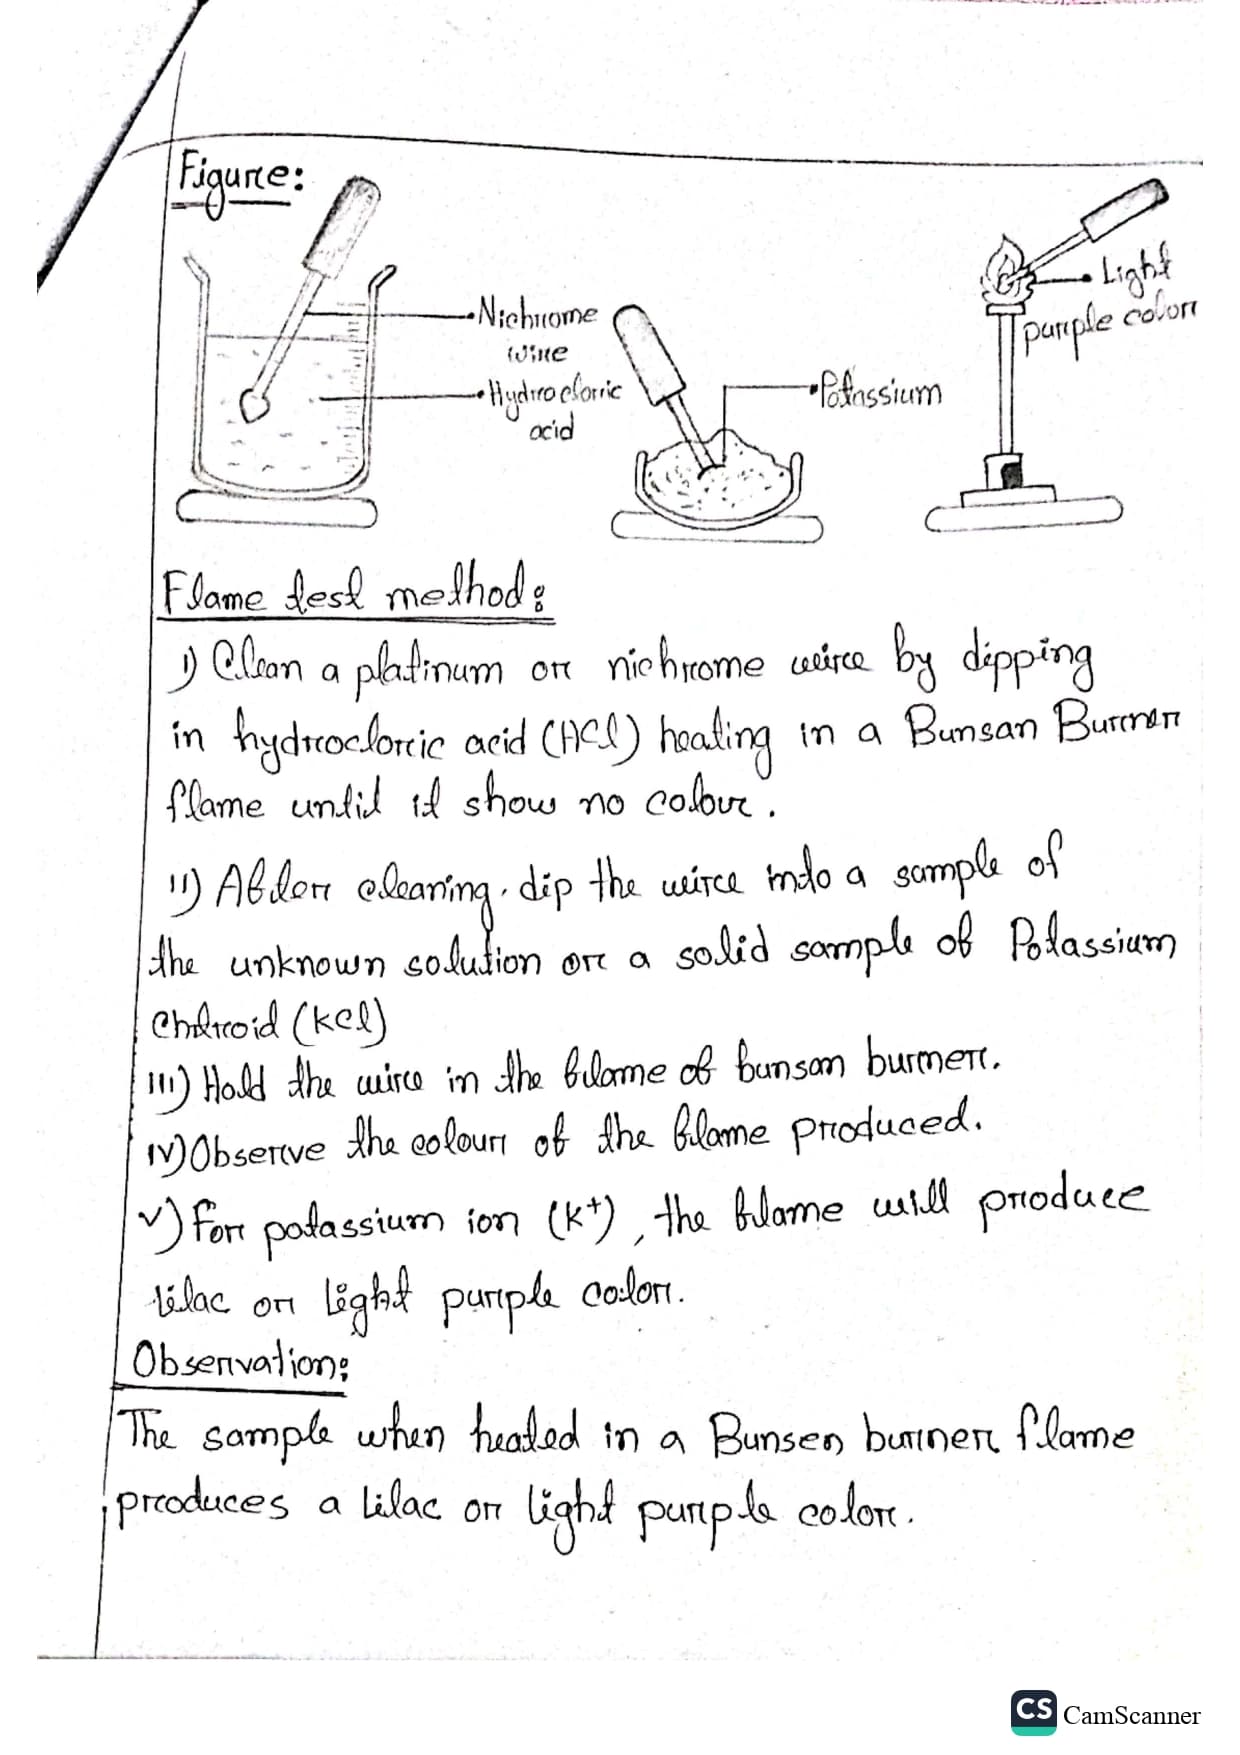 Figure:
Light
purple color
Nichrome
wire
Hydrocloric
acid
Potassium
Flame test method:
i) Clean a platinum or nichrome weire by dipping
in hydrocloric acid (HCl) heating in a Bunsan Burner
flame until it show no colour.
ii) After cleaning, dip the weire into a sample of
the unknown solution or a solid sample of Potassium
(KCl)
iii) Hold the wire in the flame of bunsan burner.
iv) Observe the colour of the flame produced.
v) For potassium ion (K+), the flame will produce
lilac or light purple color.
Observation:
The sample when heated in a Bunsen burner flame
produces a lilac or light purple color.
CS CamScanner